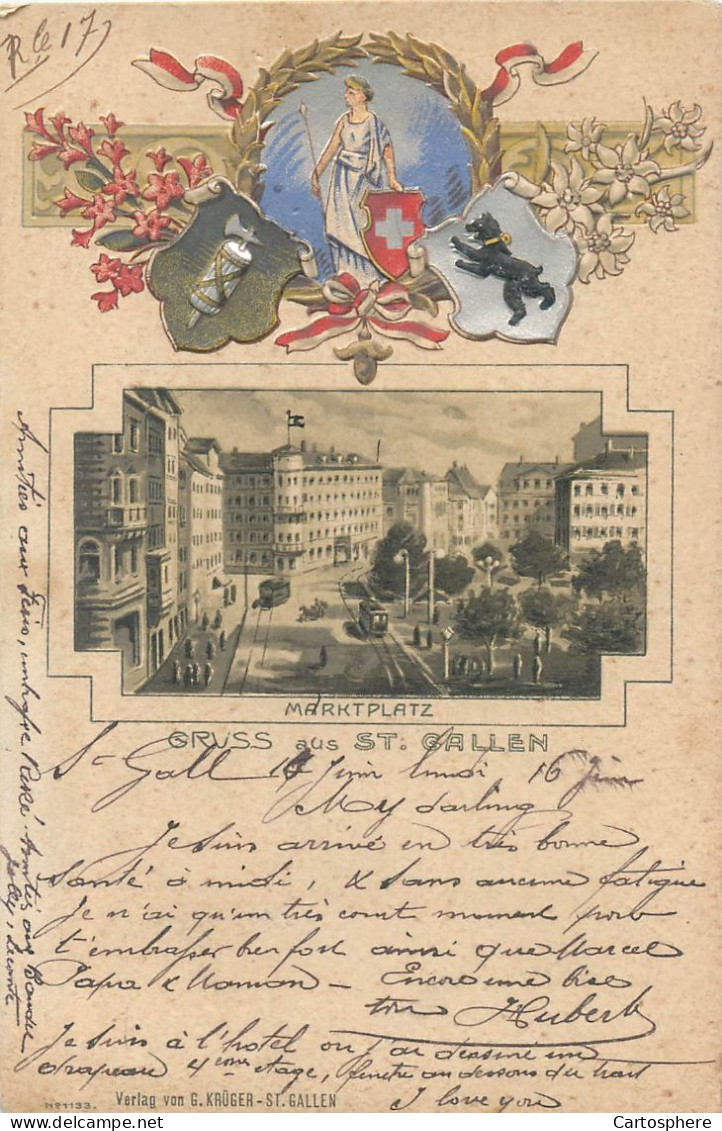 Rle 17
MARKTPLATZ
GRUSS aus ST. GALLEN
St Gall 16 Juin lundi 16 juin
My darling
Je suis arrivé en très bonne
santé à midi, & sans aucune fatigue
Je n'ai qu'un très court moment pour
t'embrasser bien fort ainsi que Marcel
Papa & Maman - Encore une bise
ton Hubert
Je suis à l'hotel ou j'ai dessiné un
drapeau 4ème etage, fenetre au dessous du trait
I love you
Amitiés aux Feris, embrasse René Amitiés aux
Nº 1133. Verlag von G. KRÜGER - ST. GALLEN
Cartosphere